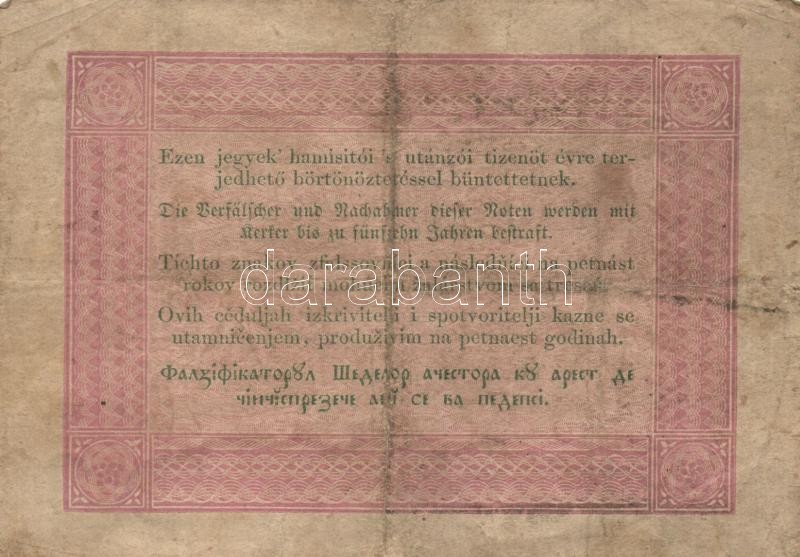 Ezen jegyek' hamisitói 's utánzói tizenöt évre ter-
jedhető börtönöztetéssel büntettetnek.
Die Verfälscher und Nachahmer dieser Noten werden mit
Kerker bis zu fünfzehn Jahren bestraft.
Tíchto znakov a následňíci na petnást
rokov
darabanth
Ovih céduljah izkrivitelji i spotvoritelji kazne se
utamničenjem, produživim na petnaest godinah.
Фалꙅіфікаторꙋл Шеделор ачестора кꙋ арест де
чінчіспрезече ай се ва педепсі.